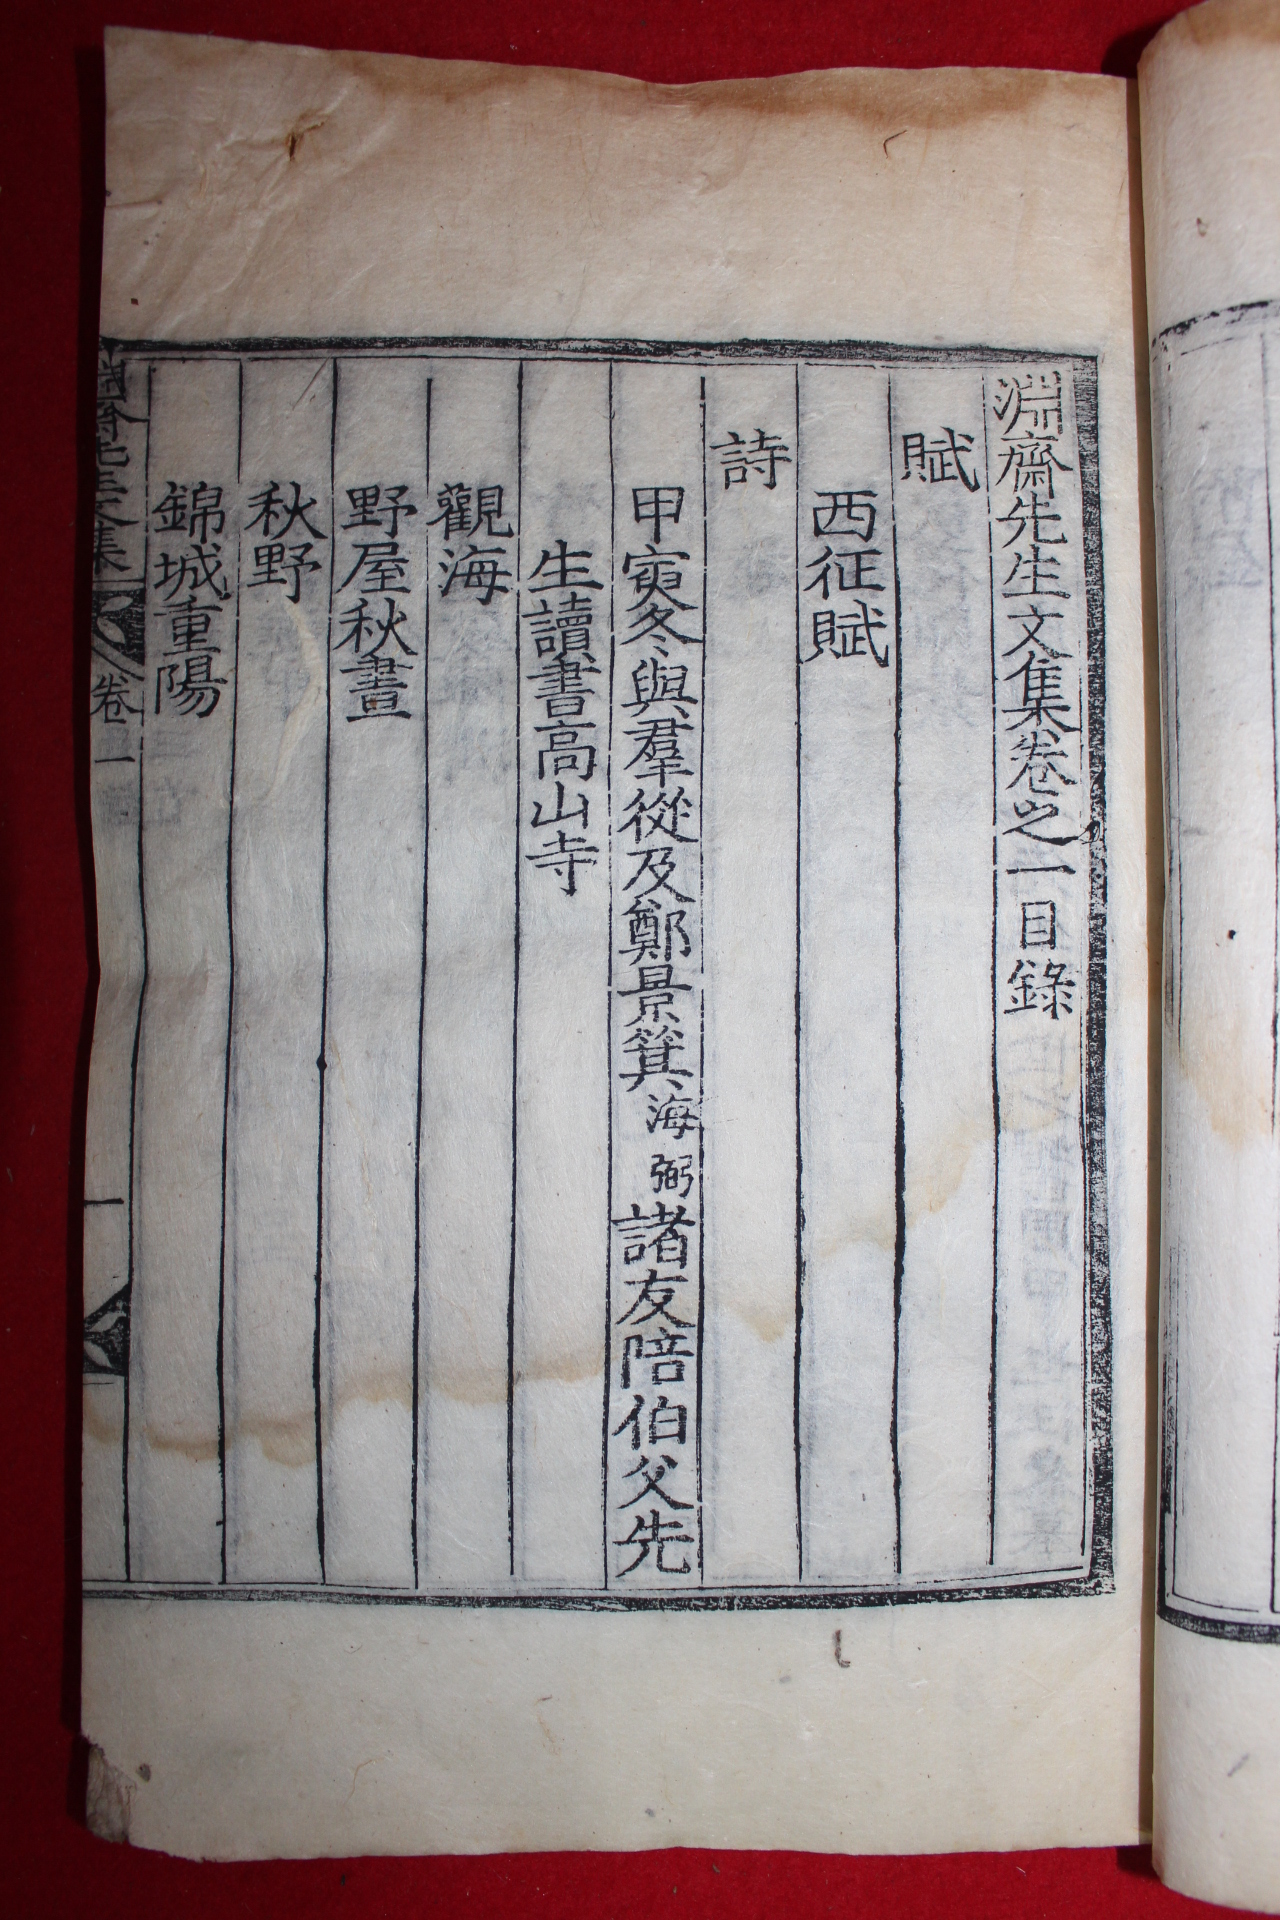 淵齋先生文集卷之一目錄
賦
西征賦
詩
甲寅冬與羣從及鄭景箕海弼諸友陪伯父先
生讀書高山寺
觀海
野屋秋晝
秋野
錦城重陽
淵齋先生文集 卷一 一